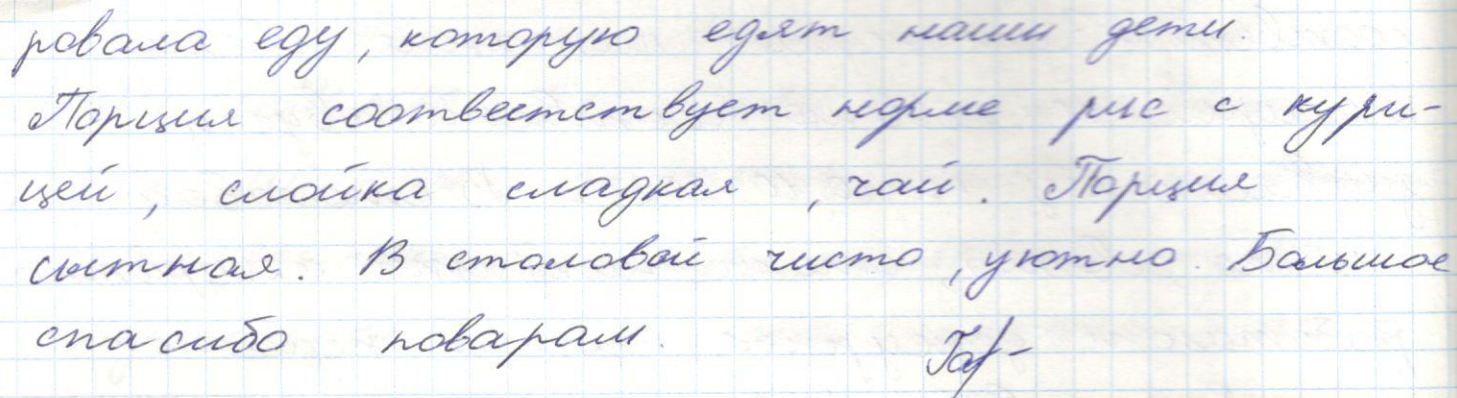 ровала еду, которую едят наши дети.
Порция соответствует норме рис с кури-
цей, слойка сладкая, чай. Порция
сытная. В столовой чисто, уютно. Большое
спасибо поварам.